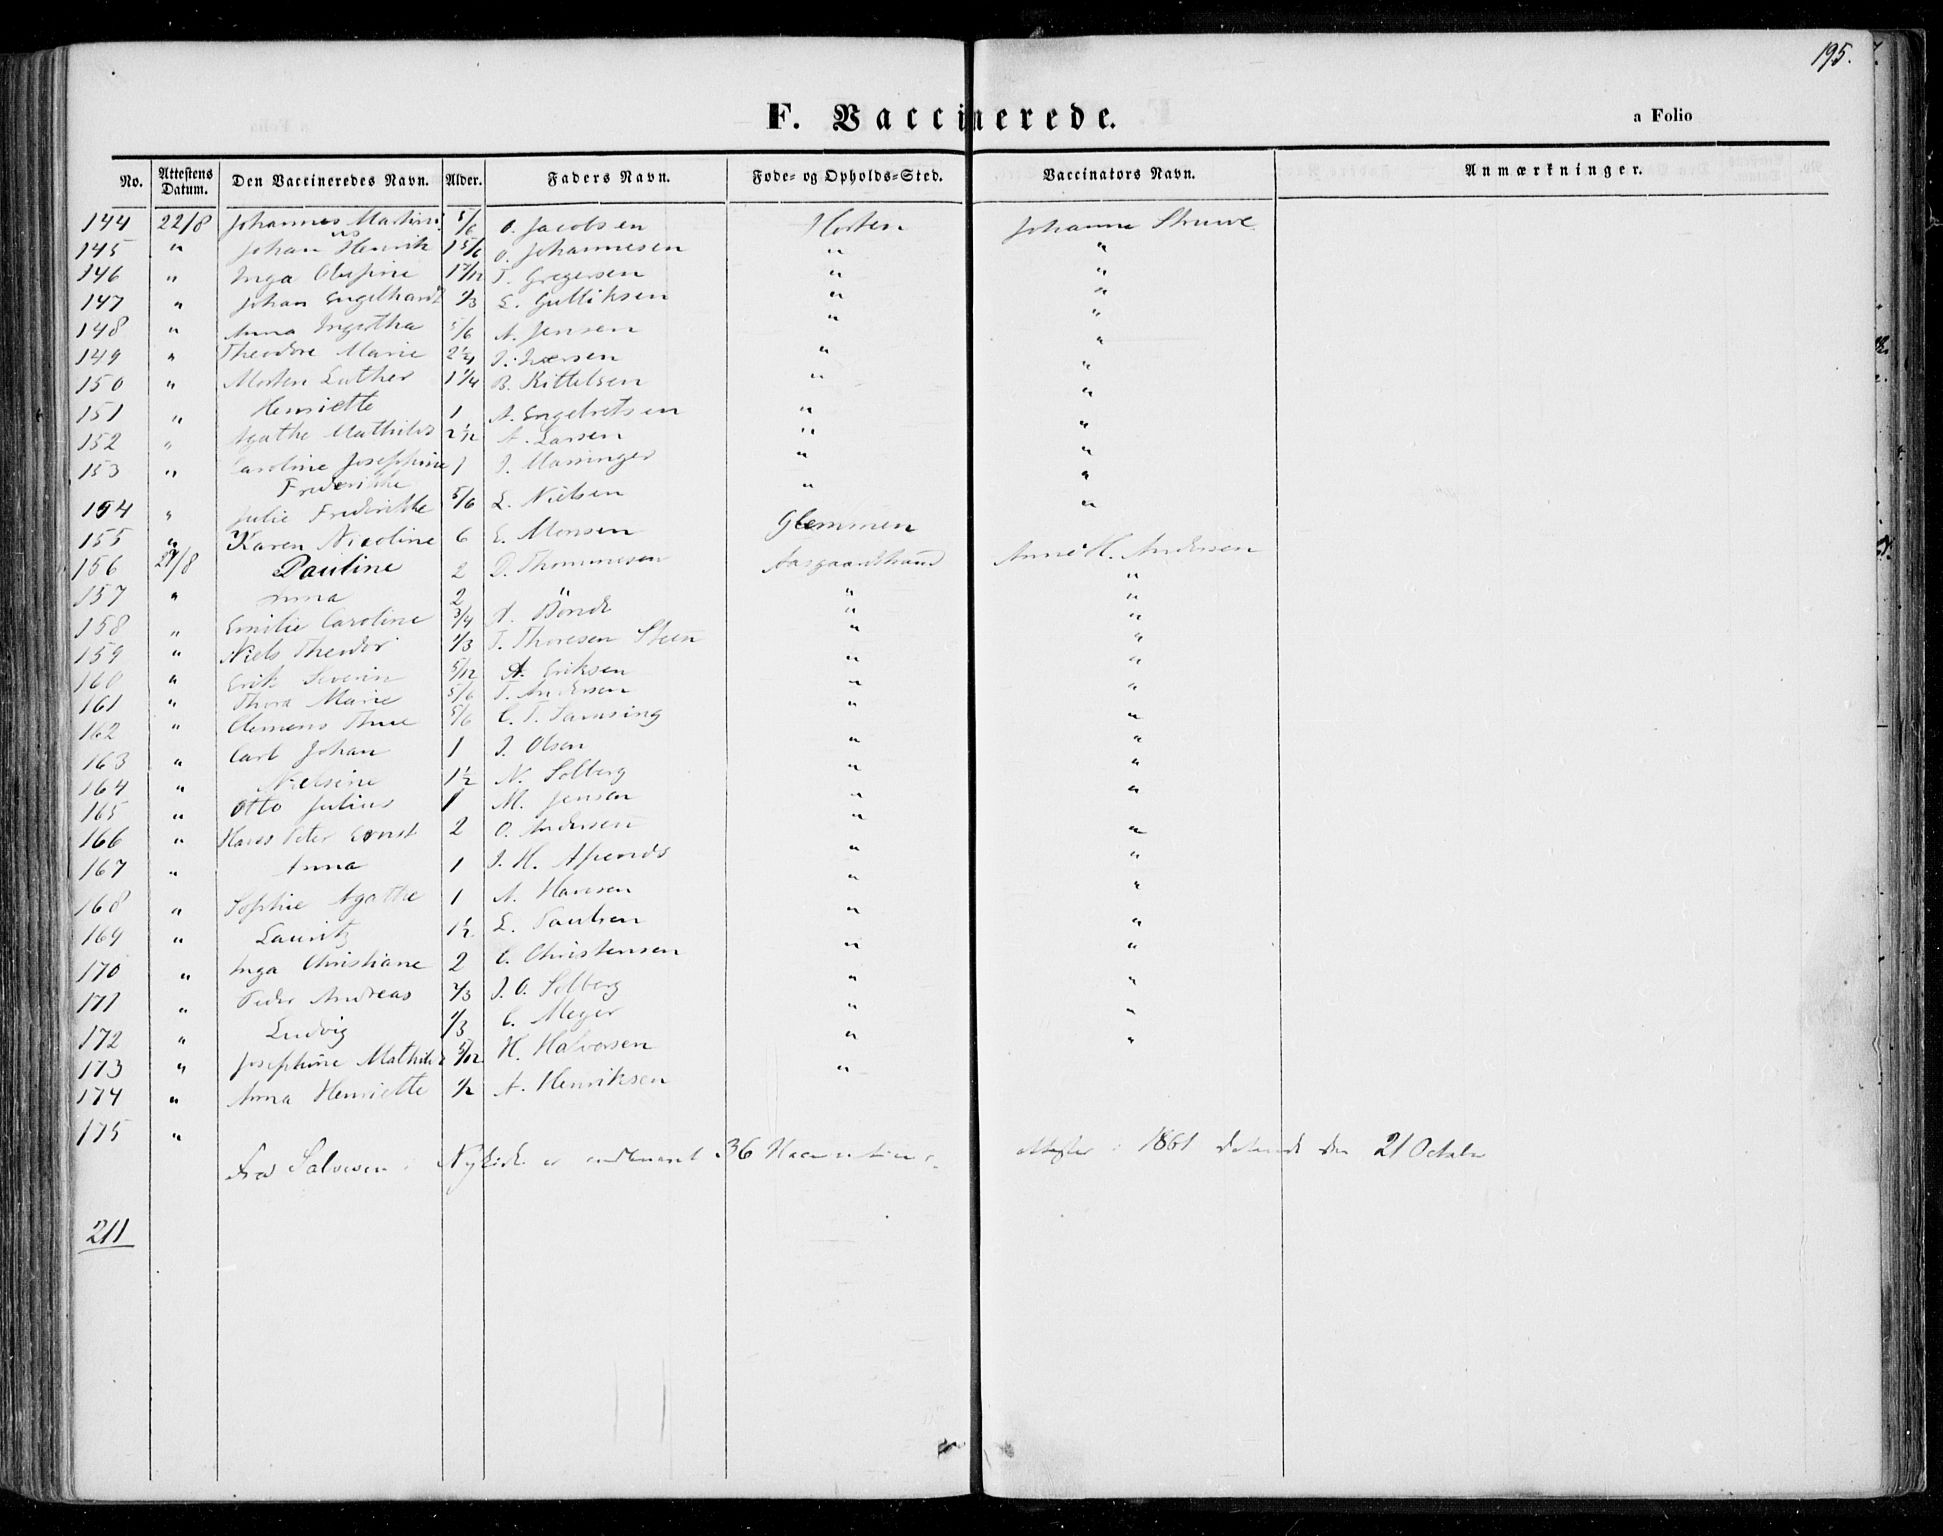 195.
F. Vaccinerede.
a Folio
No. Attestens Datum. Den Vaccineredes Navn. Alder. Faders Navn. Føde- og Opholds-Sted. Vaccinators Navn. Anmærkninger.
144 22/8 Johannes Martini 5/6 O. Jacobsen Horten Johanne Struwe
145 " Johan Henrik 1 5/6 O. Johannesen " "
146 " Inga Olufine 1 7/12 T. Gregersen " "
147 " Johan Engelhardt 1/3 L. Gulliksen " "
148 " Anna Ingertha 5/6 A. Jensen " "
149 " Theodore Marie 2 1/4 J. Iversen " "
150 " Morten Luther 1 1/4 B. Kittelsen " "
151 " Henriette 1 A. Engebretsen " "
152 " Agathe Mathilde 2 1/12 A. Larsen " "
153 " Caroline Josephine 1 J. " "
Frederikke
154 " Julie Frederikke 5/6 L. Nielsen " "
155 " Karen Nicoline 6 E. Monsen Glemmen
156 27/8 Pauline 2 D. Thommesen Aasgaardstrand Anne H. Andersen
157 " Anna 2 " " "
158 " Emilie Caroline 3/4 A. Bonde " "
159 " Niels Theodor 1/3 T. Thoresen Steen " "
160 " Erik Severin 5/12 A. Eriksen " "
161 " Thora Marie 5/6 T. Andersen " "
162 " Clemens Thue 5/6 C. T. Samsing " "
163 " Carl Johan 1 J. Olsen " "
164 " Nielsine 1 1/2 N. Solberg " "
165 " Otto Julius 1 M. Jensen " "
166 " Hans Peter Ernst 2 O. Andersen " "
167 " Anna 1 J. H. " "
168 " Sophie Agathe 1 A. Hansen " "
169 " Lauritz 1 1/2 L. Paulsen " "
170 " Inga Christiane 2 C. Christensen " "
171 " Peder Andreas 2/3 J. O. Solberg " "
172 " Ludvig 1/3 C. Meyer " "
173 " Josephine Mathilde 5/12 H. Halvorsen " "
174 " Anna Henriette 1/2 A. Henriksen "
175 "
Fra Salvesen i Nykirke er 36 attester i 1861 daterede den 21 October
211